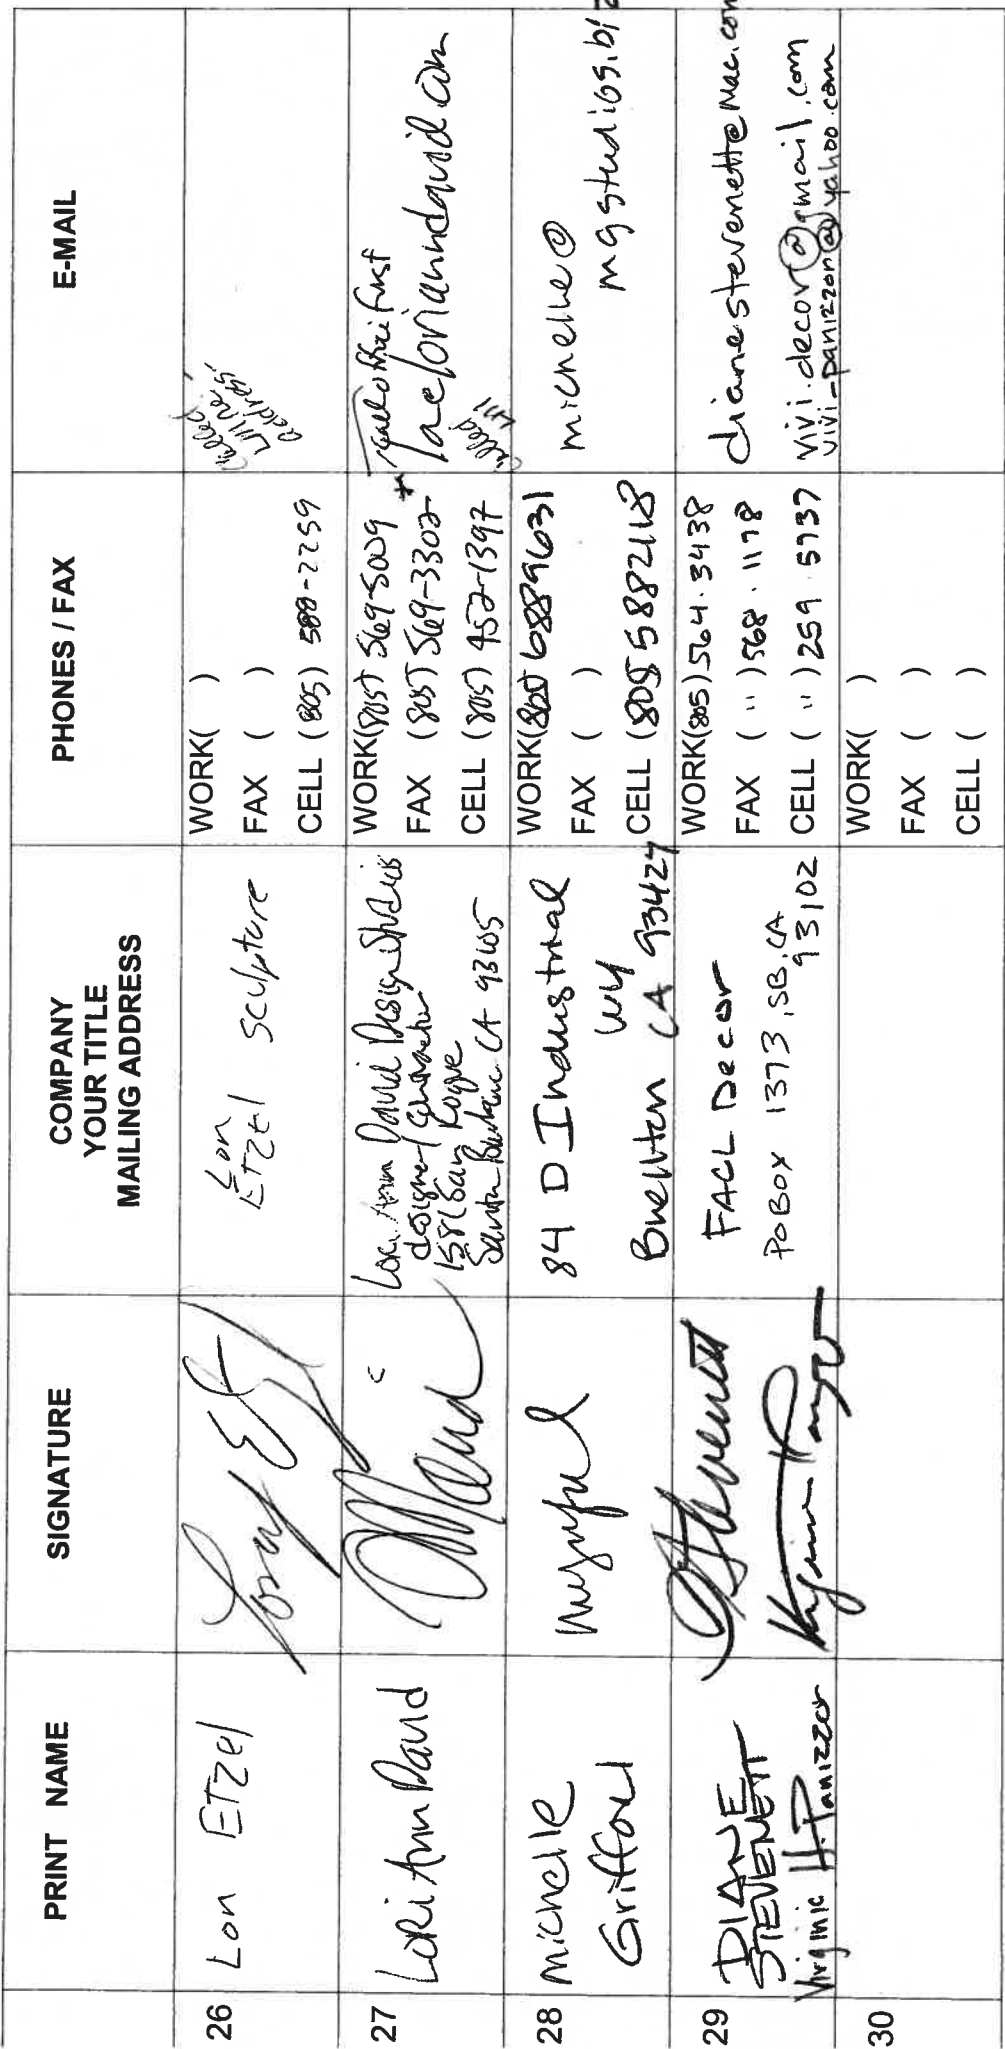 PRINT NAME
SIGNATURE
COMPANY
YOUR TITLE
MAILING ADDRESS
PHONES / FAX
E-MAIL
26
Lon Etzel
Lon
Etzel Sculpture
WORK( )
FAX ( )
CELL (805) 588-2259
Called
address
27
Lori Ann David
Lori Ann David Design Studio
designer/
1581 San Roque
Santa Barbara CA 93105
WORK(805) 569-5009
FAX (805) 569-3302
CELL (805) 452-1397
* first
called
28
michelle
Griffoul
84 D Industrial
Wy
Buellton CA 93427
WORK(805 6889631
FAX ( )
CELL (805 5882118
michelle@
mgstudios.biz
29
DIANE
STEVENETT
Virginie H. Panizzon
FACL Decor
PO BOX 1373, SB, CA
93102
WORK(805) 564.3438
FAX ( " ) 568.1178
CELL ( " ) 259.5937
dianestevenett@mac.com
vivi.decor@gmail.com
vivi_panizzon@yahoo.com
30
WORK( )
FAX ( )
CELL ( )